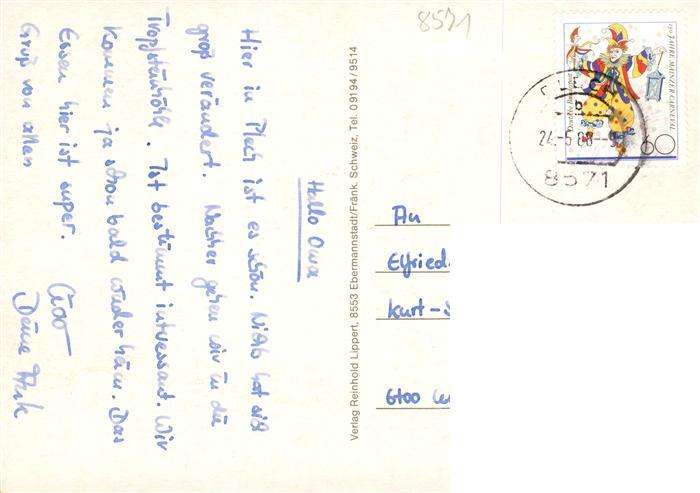 Hallo Owa
Hier in Plech ist es schön. Nichts hat sich
groß verändert. Nachher gehen wir in die
Tropfsteinhöhle. Ist bestimmt interessant. Wir
kommen ja schon bald wieder heim. Das
Essen hier ist super.
Gruß von allen
Deine
Verlag Reinhold Lippert, 8553 Ebermannstadt/Fränk. Schweiz, Tel. 09194/9514
An
Elfried
Kurt-S
6100
8571
150 JAHRE MAINZER CARNEVAL
Deutsche Bundespost
60
PLECH
24.-5.88.--9
8571